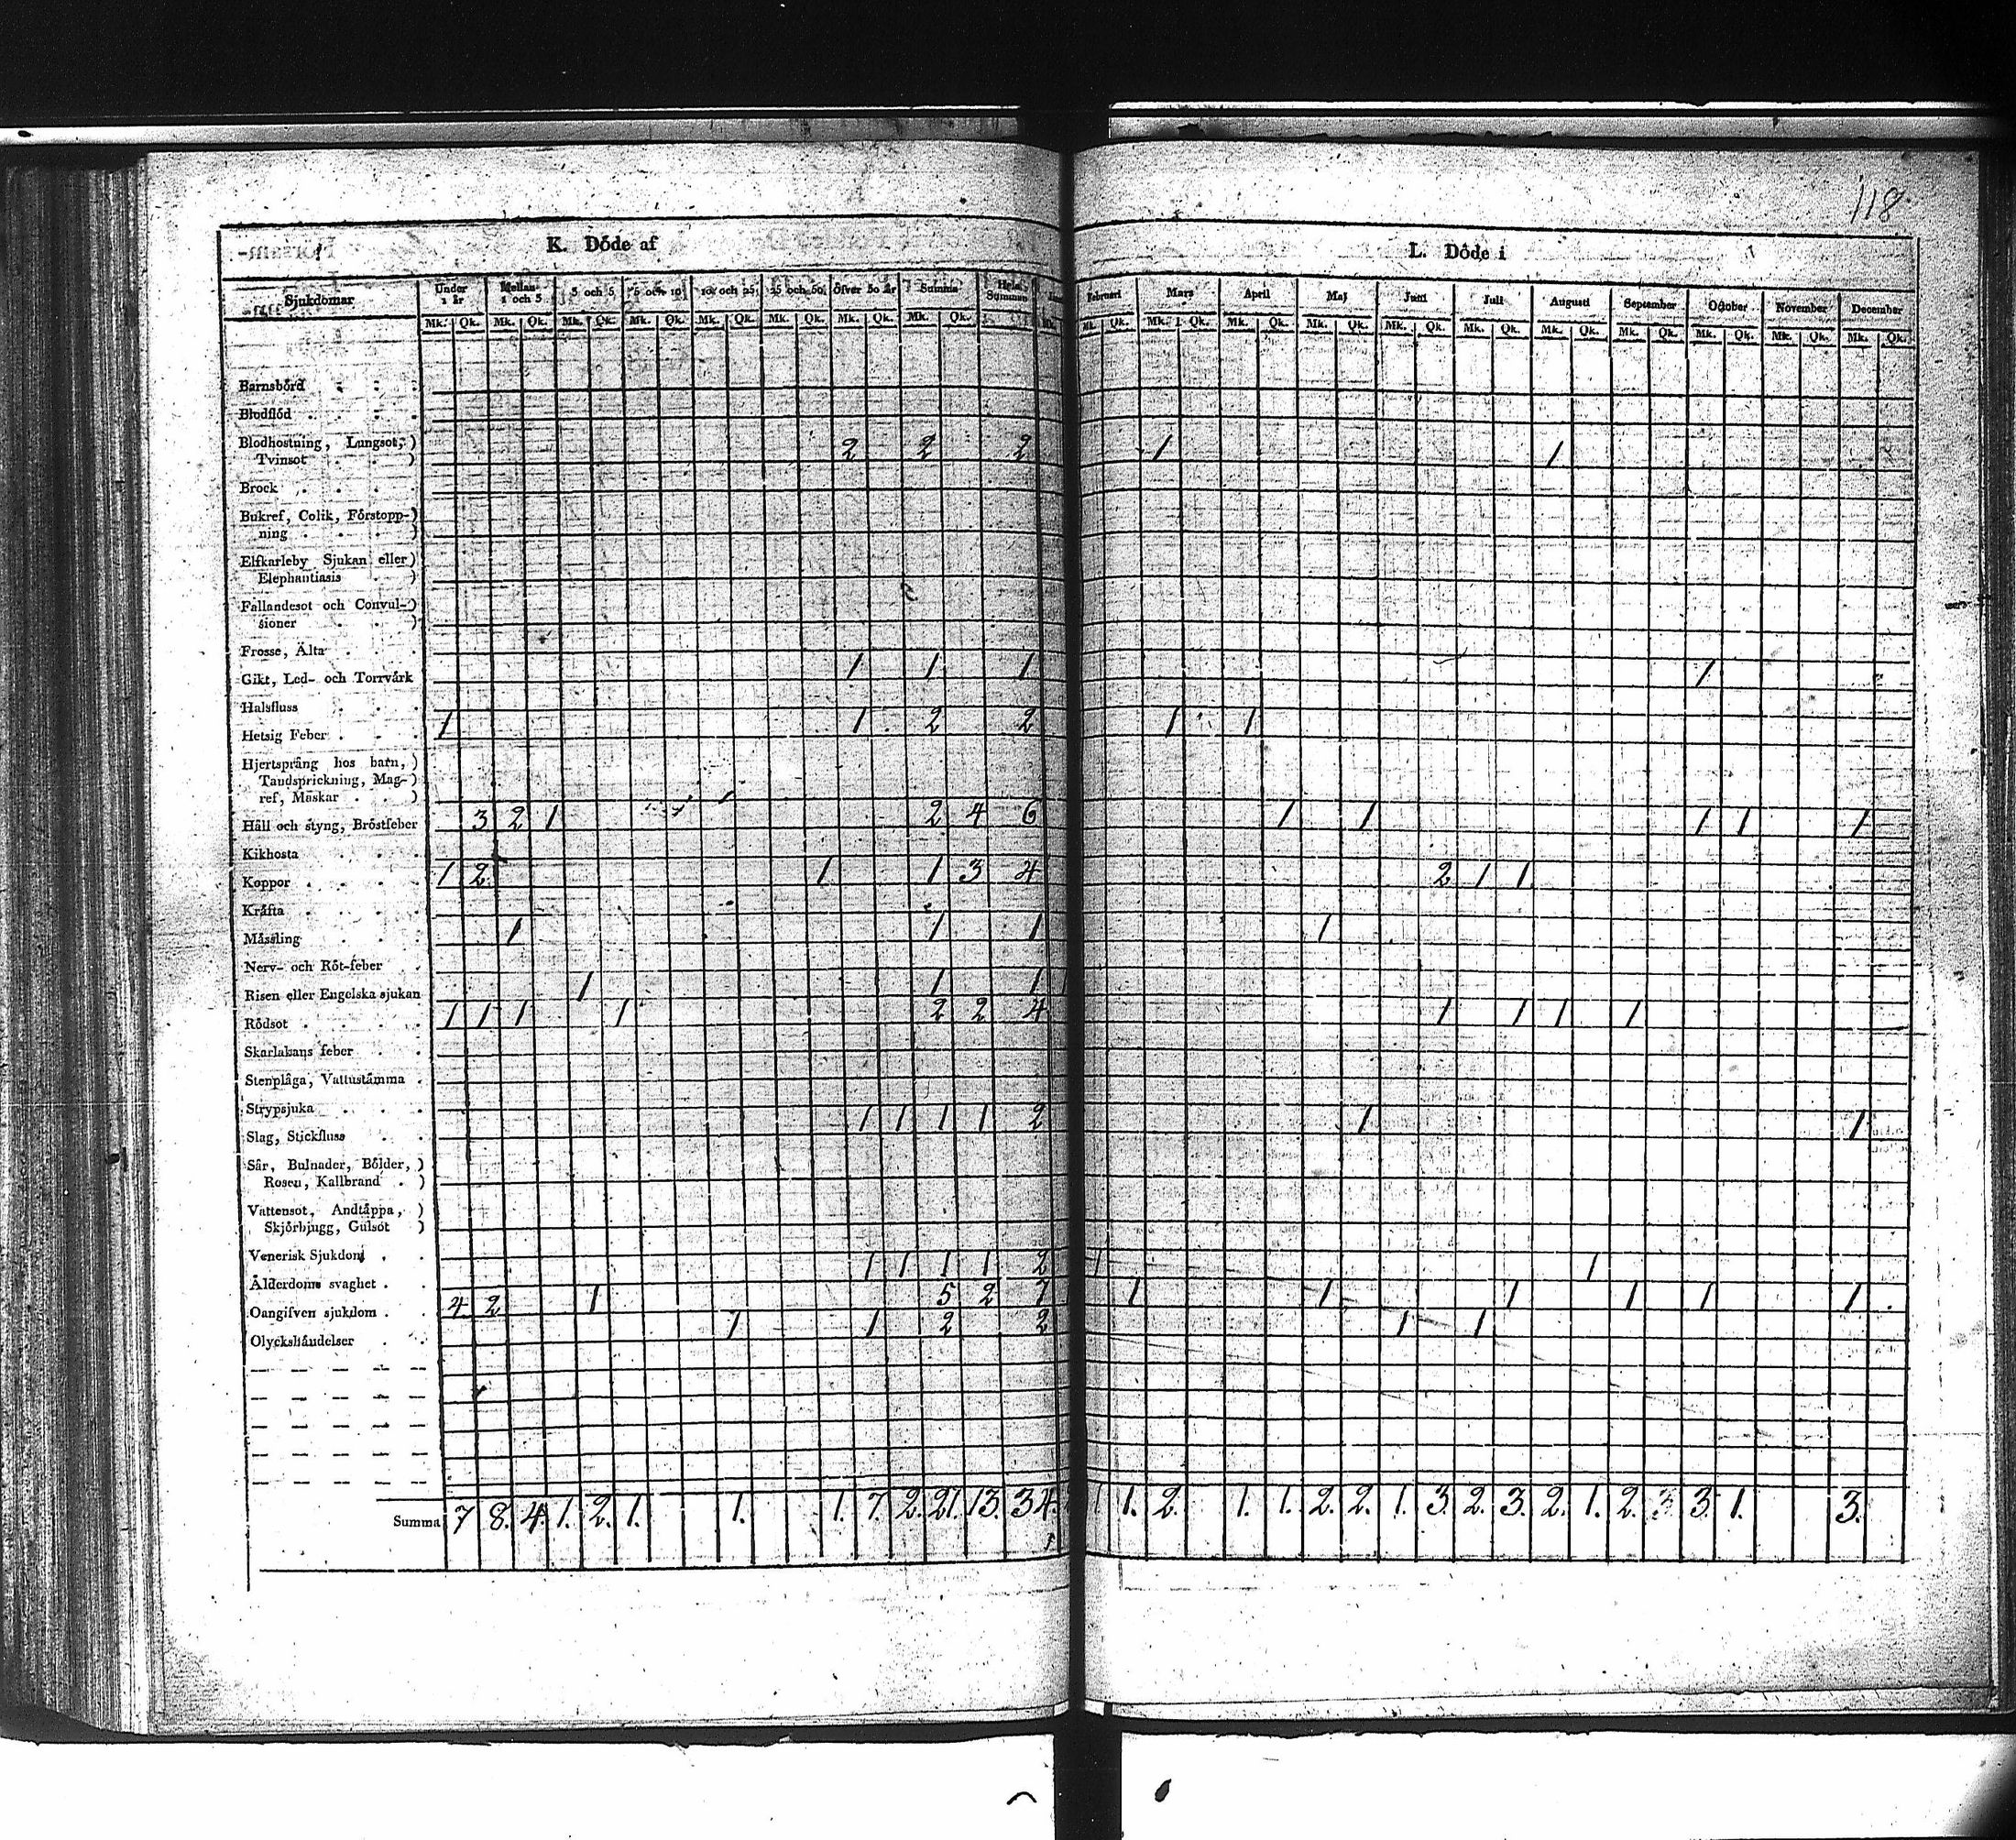 118
K. Döde af
L. Döde i
Sjukdomar Under 1 år Mellan 1 och 3 3 och 5 5 och 10 10 och 25 25 och 50 Öfver 50 år Summa Hela Summan
Februari Mars April Maj Juni Juli Augusti September October November December
Mk. Qk. Mk. Qk. Mk. Qk. Mk. Qk. Mk. Qk. Mk. Qk. Mk. Qk. Mk. Qk.
Mk. Qk. Mk. Qk. Mk. Qk. Mk. Qk. Mk. Qk. Mk. Qk. Mk. Qk. Mk. Qk. Mk. Qk. Mk. Qk. Mk. Qk.
Barnsbörd
Blodflöd
Blodhostning, Lungsot,)
Tvinsot ) 2 2 2 1 1
Brock
Bukref, Colik, Förstopp-)
ning )
Elfkarleby Sjukan eller)
Elephantiasis )
Fallandesot och Convul-)
sioner )
Frosse, Älta
Gikt, Led- och Torrvärk 1 1 1 1
Halsfluss
Hetsig Feber 1 1 2 2 1 1
Hjertsprång hos barn, )
Tandsprickning, Mag-)
ref, Maskar )
Håll och styng, Bröstfeber 3 2 1 2 4 6 1 1 1 1 1
Kikhosta
Koppor 1 2 1 1 3 4 2 1 1
Kräfta
Mässling 1 1 1 1
Nerv- och Röt-feber
Risen eller Engelska sjukan 1 1 1 1
Rödsot 1 1 1 1 2 2 4 1 1 1 1
Skarlakans feber
Stenplåga, Vattustämma
Strypsjuka
Slag, Stickfluss 1 1 1 1 2 1 1
Sår, Bulnader, Bölder, )
Rosen, Kallbrand )
Vattensot, Andtäppa, )
Skjörbjugg, Gulsot )
Venerisk Sjukdom
Ålderdoms svaghet 1 1 1 1 2 1 1
Oangifven sjukdom 4 2 1 5 2 7 1 1 1 1 1 1
Olyckshändelser 1 1 2 2 1 1
Summa 7 8. 4. 1. 2. 1. 1. 1. 7. 2. 21. 13. 34. 1 1. 2. 1. 1. 2. 2. 1. 3. 2. 3. 2. 1. 2. 3. 3. 1. 3.